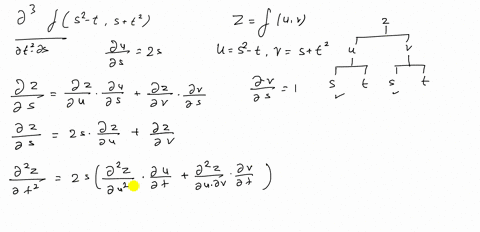 ∂³ / ∂t²·∂s f(s²-t, s+t²)
z = f(u,v)
∂u/∂s = 2s
u = s²-t, v = s+t²
z
u v
s t s t
∂z/∂s = ∂z/∂u · ∂u/∂s + ∂z/∂v · ∂v/∂s
∂v/∂s = 1
∂z/∂s = 2s · ∂z/∂u + ∂z/∂v
∂²z/∂t² = 2s(∂²z/∂u² · ∂u/∂t + ∂²z/∂u·∂v · ∂v/∂t)